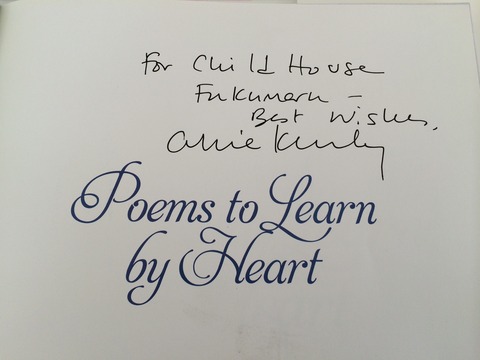 For Child House
Fukumaru -
Best Wishes,
Poems to Learn
by Heart